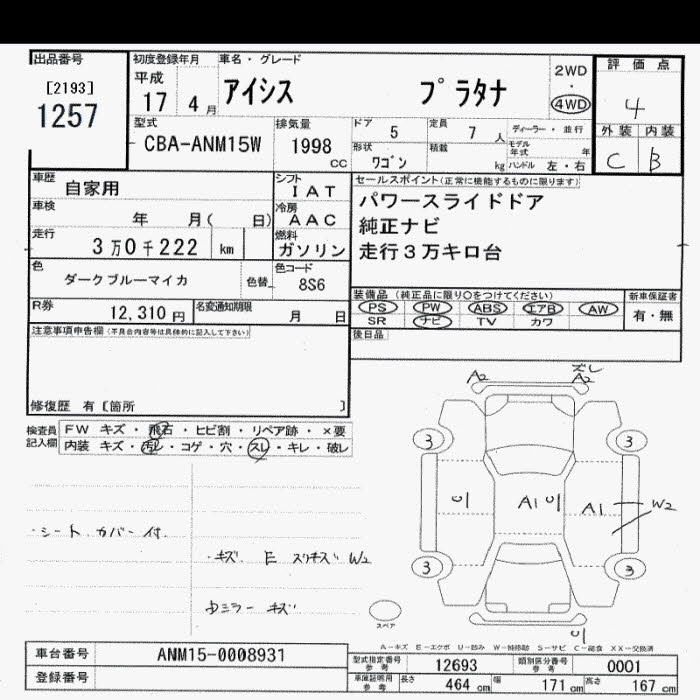 出品番号
[2193]
1257
初度登録年月 車名・グレード
平成
17 4月
アイシス プラタナ
2WD
・
4WD
評価点
4
外装 内装
C B
型式
CBA-ANM15W
排気量
1998
CC
ドア 5
定員 7人
ディーラー・並行
形状 ワゴン
積載 kg
モデル年式 年
ハンドル 左・右
車歴
自家用
車検
年 月( 日)
走行
3万0千222 km
シフト
IAT
冷房
AAC
燃料
ガソリン
セールスポイント(正常に機能するものに限ります)
パワースライドドア
純正ナビ
走行3万キロ台
色
ダークブルーマイカ
色替
色コード
8S6
装備品 (純正品に限り○をつけてください)
PS PW ABS エアB AW
SR ナビ TV カワ
新車保証書
有・無
R券
12,310円
名変通知期限
月 日
後日品
注意事項申告欄(不具合内容等は具体的に記入して下さい)
修復歴 有〔箇所 〕
検査員
記入欄
FW キズ・飛石・ヒビ割・リペア跡・×要
内装 キズ・汚レ・コゲ・穴・スレ・キレ・破レ
・シート カバー付
・キズ E スリキズ W2
ミラー キズ
A2 A2
3 3
A1 A1
W2
3 3
スペア
A-キズ E-エクボ U-凹み W-補修跡 S-サビ C-腐食 XX-交換済
車台番号
ANM15-0008931
登録番号
型式指定番号
参考
12693
類別区分番号
参考
0001
車庫証明用
参考
長さ 464 cm 幅 171 cm 高さ 167 cm